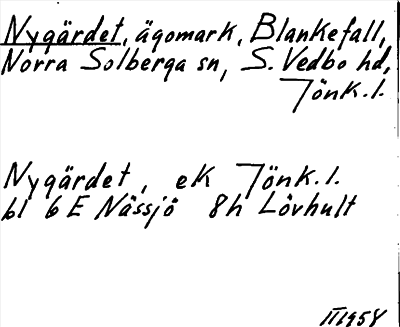 Nygärdet, ägomark, Blankefall,
Norra Solberga sn, S. Vedbo hd,
Jönk.l.
Nygärdet, ek Jönk.l.
bl 6 E Nässjö 8h Lövhult
II 1958